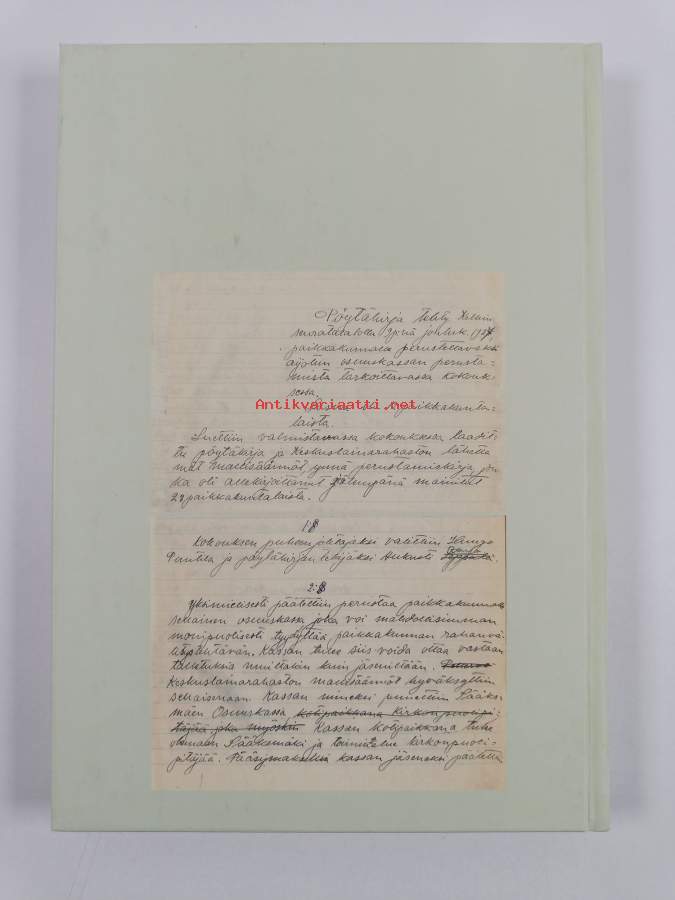 Pöytäkirja tehty
seuratalolla p:nä jouluk. 1927
paikkakunnalle perustettavaksi
aijotun osuuskassan perusta-
mista tarkoittavassa kokouk-
sessa.
paikkakunta-
laista.
Antikvariaatti.net
Luettiin valmistavassa kokouksessa laadit-
tu pöytäkirja ja Keskuslainarahaston lähettä
mät mallisäännöt ynnä perustamiskirja, jon
ka oli allekirjoittanut mainitut
29 paikkakuntalaista.
1:§
Kokouksen puheenjohtajaksi valittiin
Punttila ja pöytäkirjan tekijäksi
2:§
Yksimielisesti päätettiin perustaa paikkakunnalle
sellainen osuuskassa joka voi mahdollisimman
monipuolisesti tyydyttää paikkakunnan rahanvä-
litystehtävän. Kassan tulee siis voida ottaa vastaan
talletuksia muiltakin kuin jäseniltään.
Keskuslainarahaston mallisäännöt hyväksyttiin
sellaisenaan. Kassan nimeksi pantiin Sääks-
mäen Osuuskassa kotipaikkana Kirkonpuolipi-
täjää joka myöskin Kassan kotipaikkana tulee
olemaan Sääksmäki ja toimialue kirkonpuoli-
pitäjää. Pääsymaksuksi kassan jäseneksi päätettiin